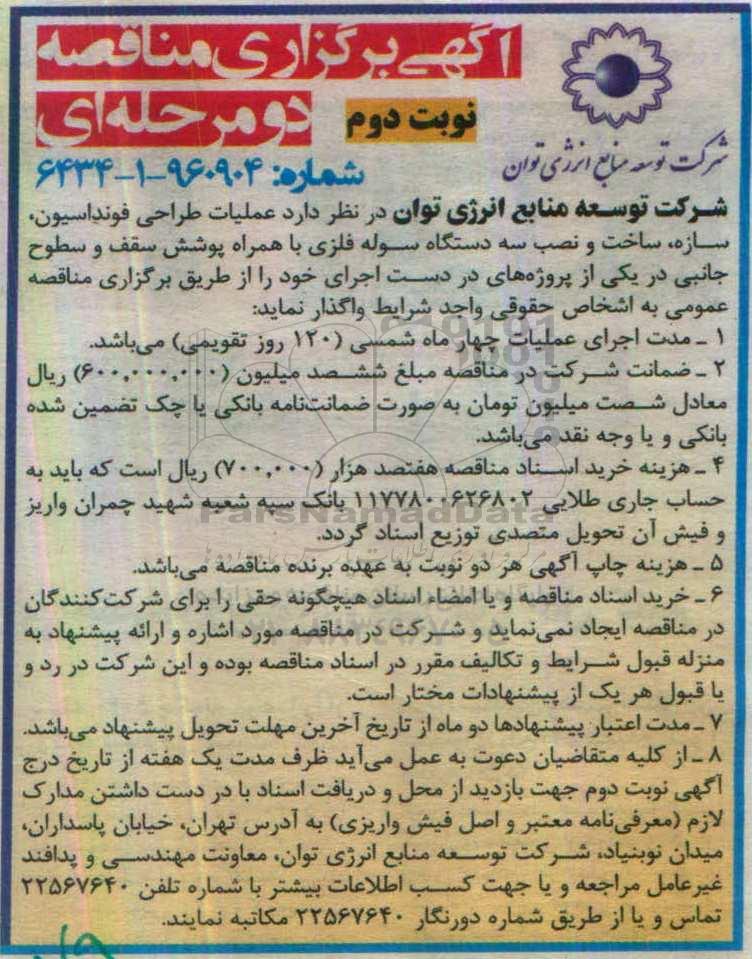 آگهی برگزاری مناقصه
دو مرحله‌ای
نوبت دوم
شرکت توسعه منابع انرژی توان
شماره: ۹۶۰۹۰۴-۱-۶۴۳۴
شرکت توسعه منابع انرژی توان در نظر دارد عملیات طراحی فونداسیون،
سازه، ساخت و نصب سه دستگاه سوله فلزی با همراه پوشش سقف و سطوح
جانبی در یکی از پروژه‌های در دست اجرای خود را از طریق برگزاری مناقصه
عمومی به اشخاص حقوقی واجد شرایط واگذار نماید:
۱ ـ مدت اجرای عملیات چهار ماه شمسی (۱۲۰ روز تقویمی) می‌باشد.
۲ ـ ضمانت شرکت در مناقصه مبلغ ششصد میلیون (۶۰۰,۰۰۰,۰۰۰) ریال
معادل شصت میلیون تومان به صورت ضمانت‌نامه بانکی یا چک تضمین شده
بانکی و یا وجه نقد می‌باشد.
۴ ـ هزینه خرید اسناد مناقصه هفتصد هزار (۷۰۰,۰۰۰) ریال است که باید به
حساب جاری طلایی ۱۱۷۷۸۰۰۶۲۶۸۰۲ بانک سپه شعبه شهید چمران واریز
و فیش آن تحویل متصدی توزیع اسناد گردد.
۵ ـ هزینه چاپ آگهی هر دو نوبت به عهده برنده مناقصه می‌باشد.
۶ ـ خرید اسناد مناقصه و یا امضاء اسناد هیچگونه حقی را برای شرکت‌کنندگان
در مناقصه ایجاد نمی‌نماید و شرکت در مناقصه مورد اشاره و ارائه پیشنهاد به
منزله قبول شرایط و تکالیف مقرر در اسناد مناقصه بوده و این شرکت در رد و
یا قبول هر یک از پیشنهادات مختار است.
۷ ـ مدت اعتبار پیشنهادها دو ماه از تاریخ آخرین مهلت تحویل پیشنهاد می‌باشد.
۸ ـ از کلیه متقاضیان دعوت به عمل می‌آید ظرف مدت یک هفته از تاریخ درج
آگهی نوبت دوم جهت بازدید از محل و دریافت اسناد با در دست داشتن مدارک
لازم (معرفی‌نامه معتبر و اصل فیش واریزی) به آدرس تهران، خیابان پاسداران،
میدان نوبنیاد، شرکت توسعه منابع انرژی توان، معاونت مهندسی و پدافند
غیرعامل مراجعه و یا جهت کسب اطلاعات بیشتر با شماره تلفن ۲۲۵۶۷۶۴۰
تماس و یا از طریق شماره دورنگار ۲۲۵۶۷۶۴۰ مکاتبه نمایند.
ParsNamadData